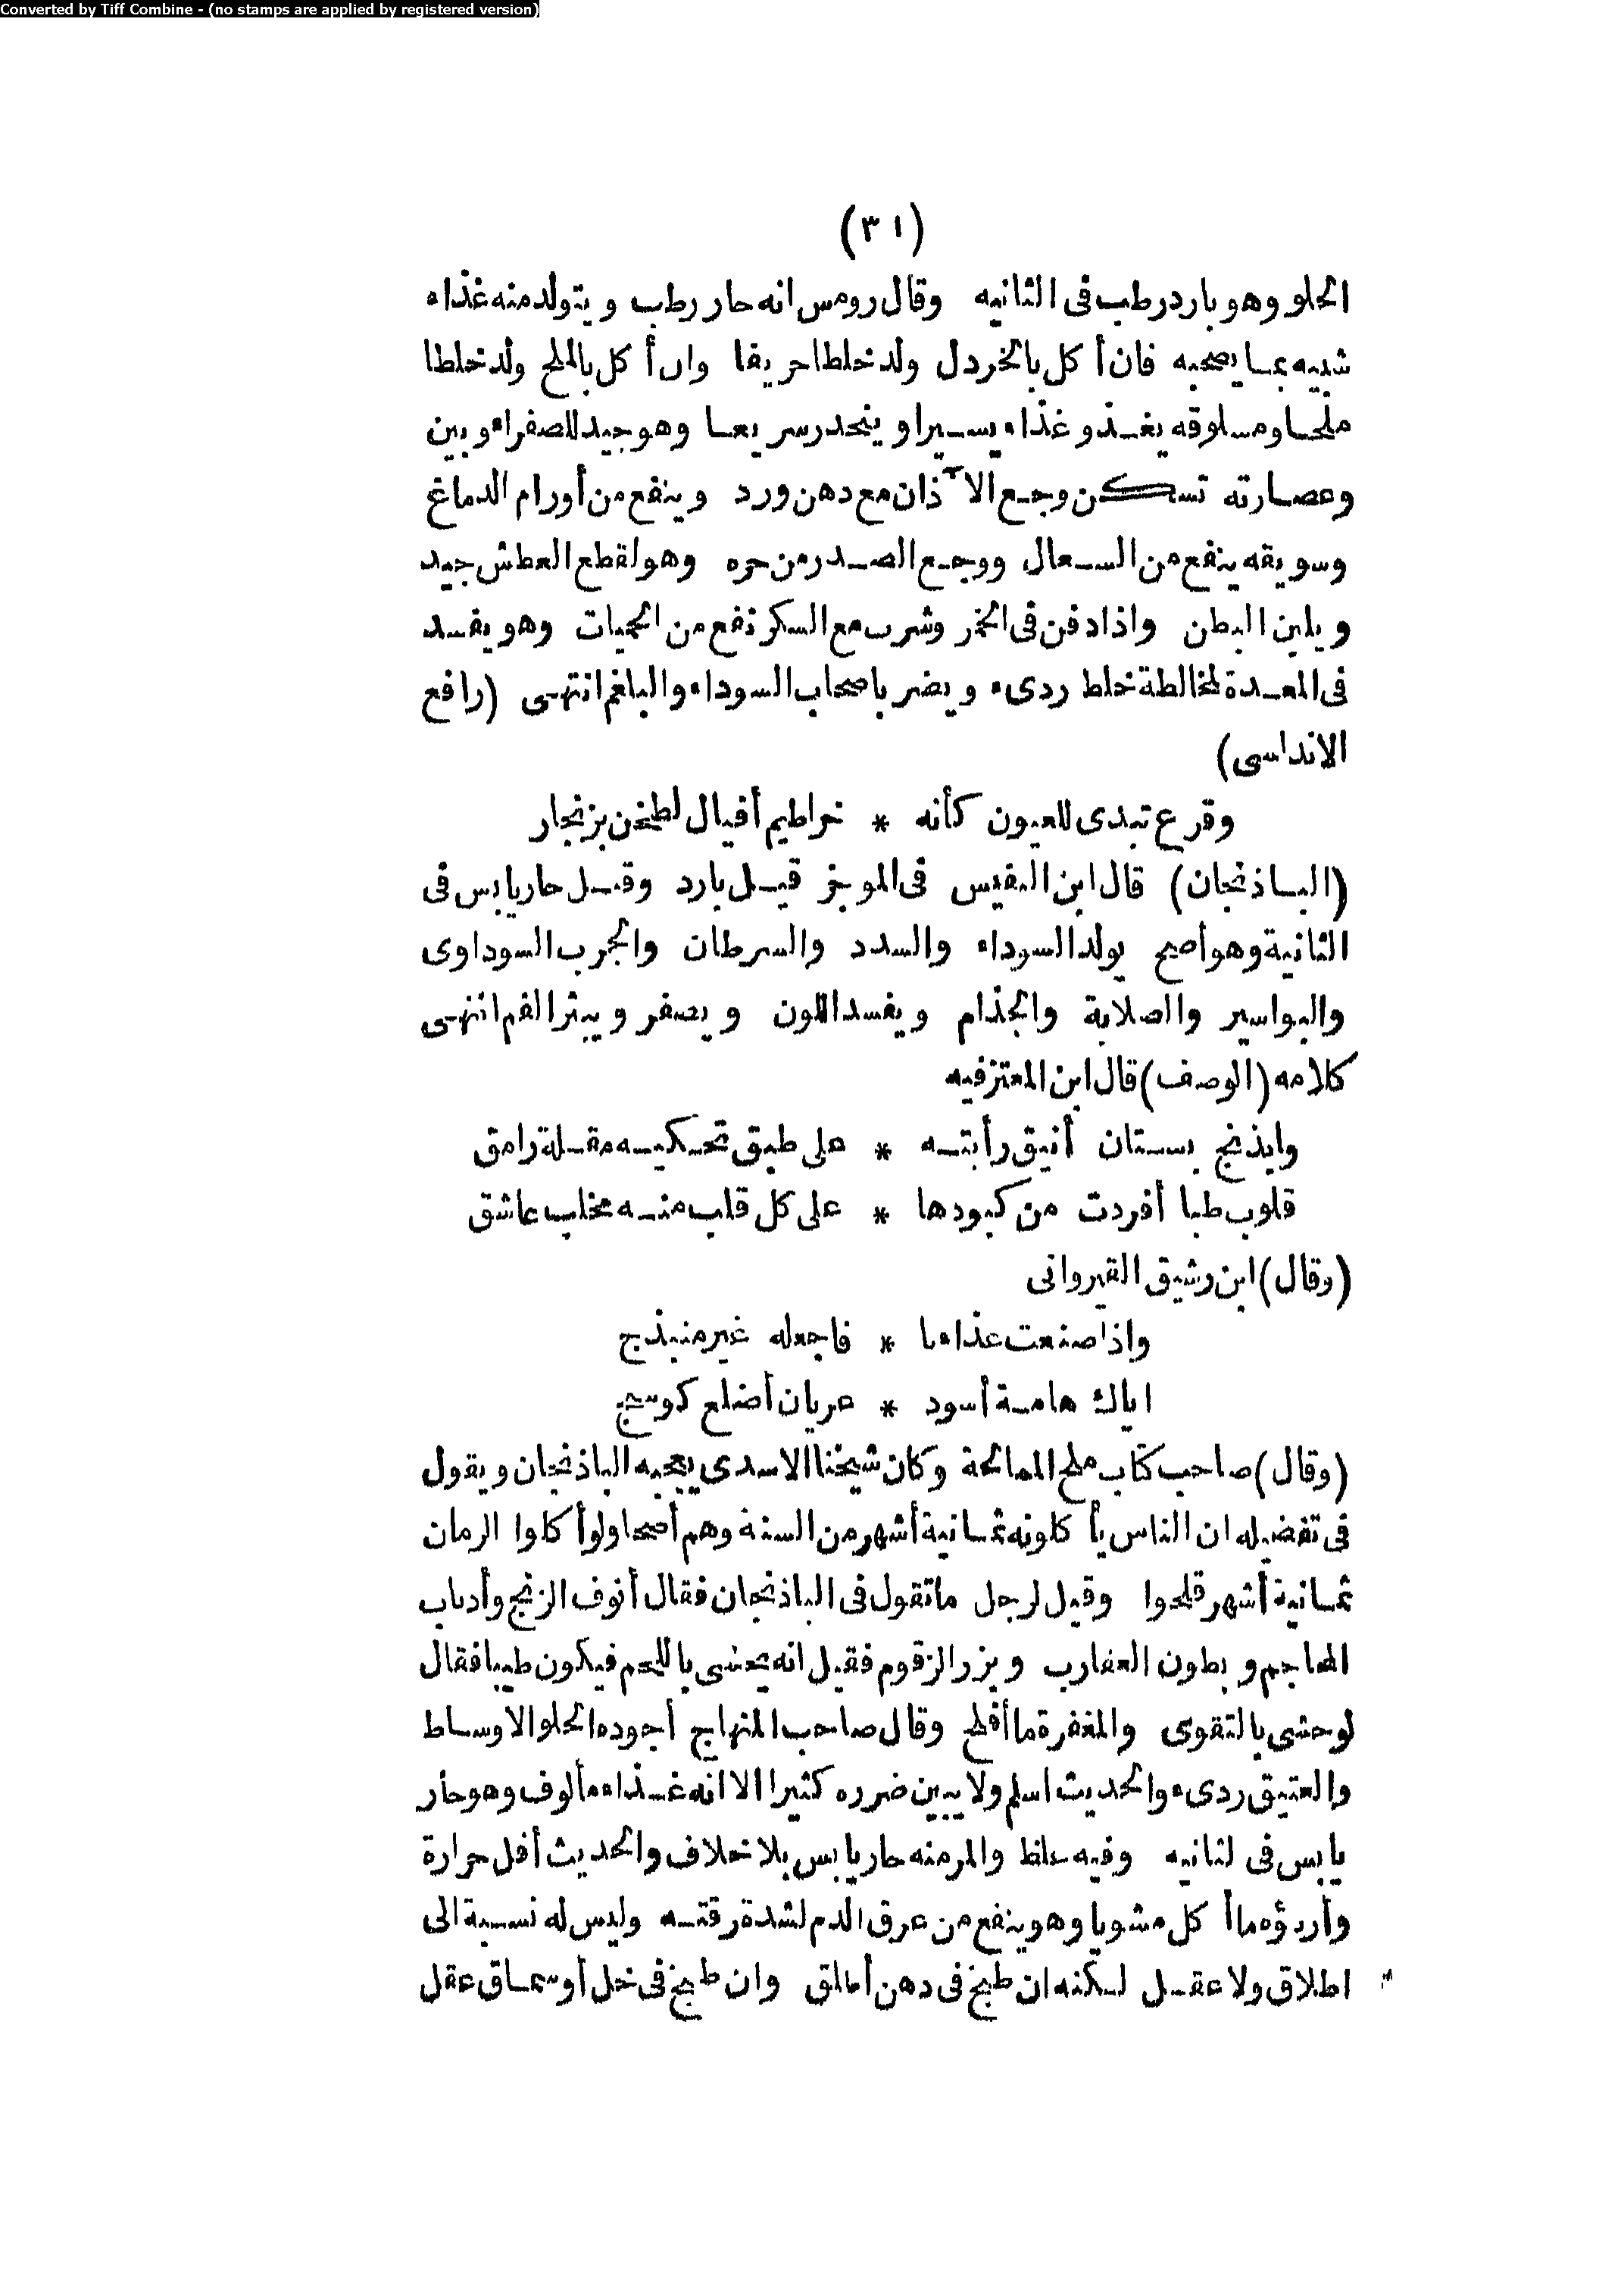 Converted by Tiff Combine - (no stamps are applied by registered version)
(٣١)
الحلو وهو بارد رطب فى الثانيه وقال رومس انه حار رطب ويتولد منه غذاء
شبيه بما يصحبه فان أكل بالخردل ولد خلطا حريفا وان أكل بالملح ولد خلطا
ملحا ومسلوقه يغذو غذاء يسيرا وينحدر سريعا وهو جيد للصفراء وبين
وعصارته تسكن وجع الآذان مع دهن ورد وينفع من أورام الدماغ
وسويقه ينفع من السعال ووجع الصدر من حره وهو لقطع العطش جيد
ويلين البطن واذا دفن فى الخمر وشرب مع السكر نفع من الحميات وهو يفسد
فى المعدة لمخالطة خلط ردىء ويضر باصحاب السوداء والبلغم انتهى (رافع
الاندلسى)
وقرع تبدى للعيون كأنه * خراطيم أفيال لطخن بزنجار
(الباذنجان) قال ابن النفيس فى الموجز قيل بارد وقيل حار يابس فى
الثانية وهو أصح يولد السوداء والسدد والسرطان والجرب السوداوى
والبواسير والصلابة والجذام ويفسد اللون ويصفر ويبثر الفم انتهى
كلامه (الوصف) قال ابن المعتز فيه
وابذنج بستان أنيق رأيته * على طبق تحكيه مقلة رامق
قلوب ظبا أفردت من كبودها * على كل قلب منه مخلب عاشق
(وقال) ابن رشيق القيروانى
واذا صنعت غذاءنا * فاجعله غير مبنذج
اياك هامة أسود * عريان أضلع كوسج
(وقال) صاحب كتاب ملح الممالحة وكان شيخنا الاسدى يعجبه الباذنجان ويقول
فى تفضيله ان الناس يأكلونه ثمانية أشهر من السنة وهم أصحاء ولو أكلوا الرمان
ثمانية أشهر فلجوا وقيل لرجل ما تقول فى الباذنجان فقال أنوف الزنج وأذناب
المحاجم وبطون العقارب وبزر الزقوم فقيل انه يحشى باللحم فيكون طيبا فقال
لو حشى بالتقوى والمغفرة ما أفلح وقال صاحب المنهاج أجوده الحلو الاوساط
والعتيق ردىء والحديث اسلم ولا يبين ضرره كثيرا الا انه غذاء مألوف وهو حار
يابس فى لثانيه وفيه غلظ والمر منه حار يابس بلا خلاف والحديث أقل حرارة
وأردؤه ما أكل مشويا وهو ينفع من عرق الدم لشدة رقته وليس له نسبة الى
اطلاق ولا عقل لكنه ان طبخ فى دهن أطلق وان طبخ فى خل أو سماق عقل